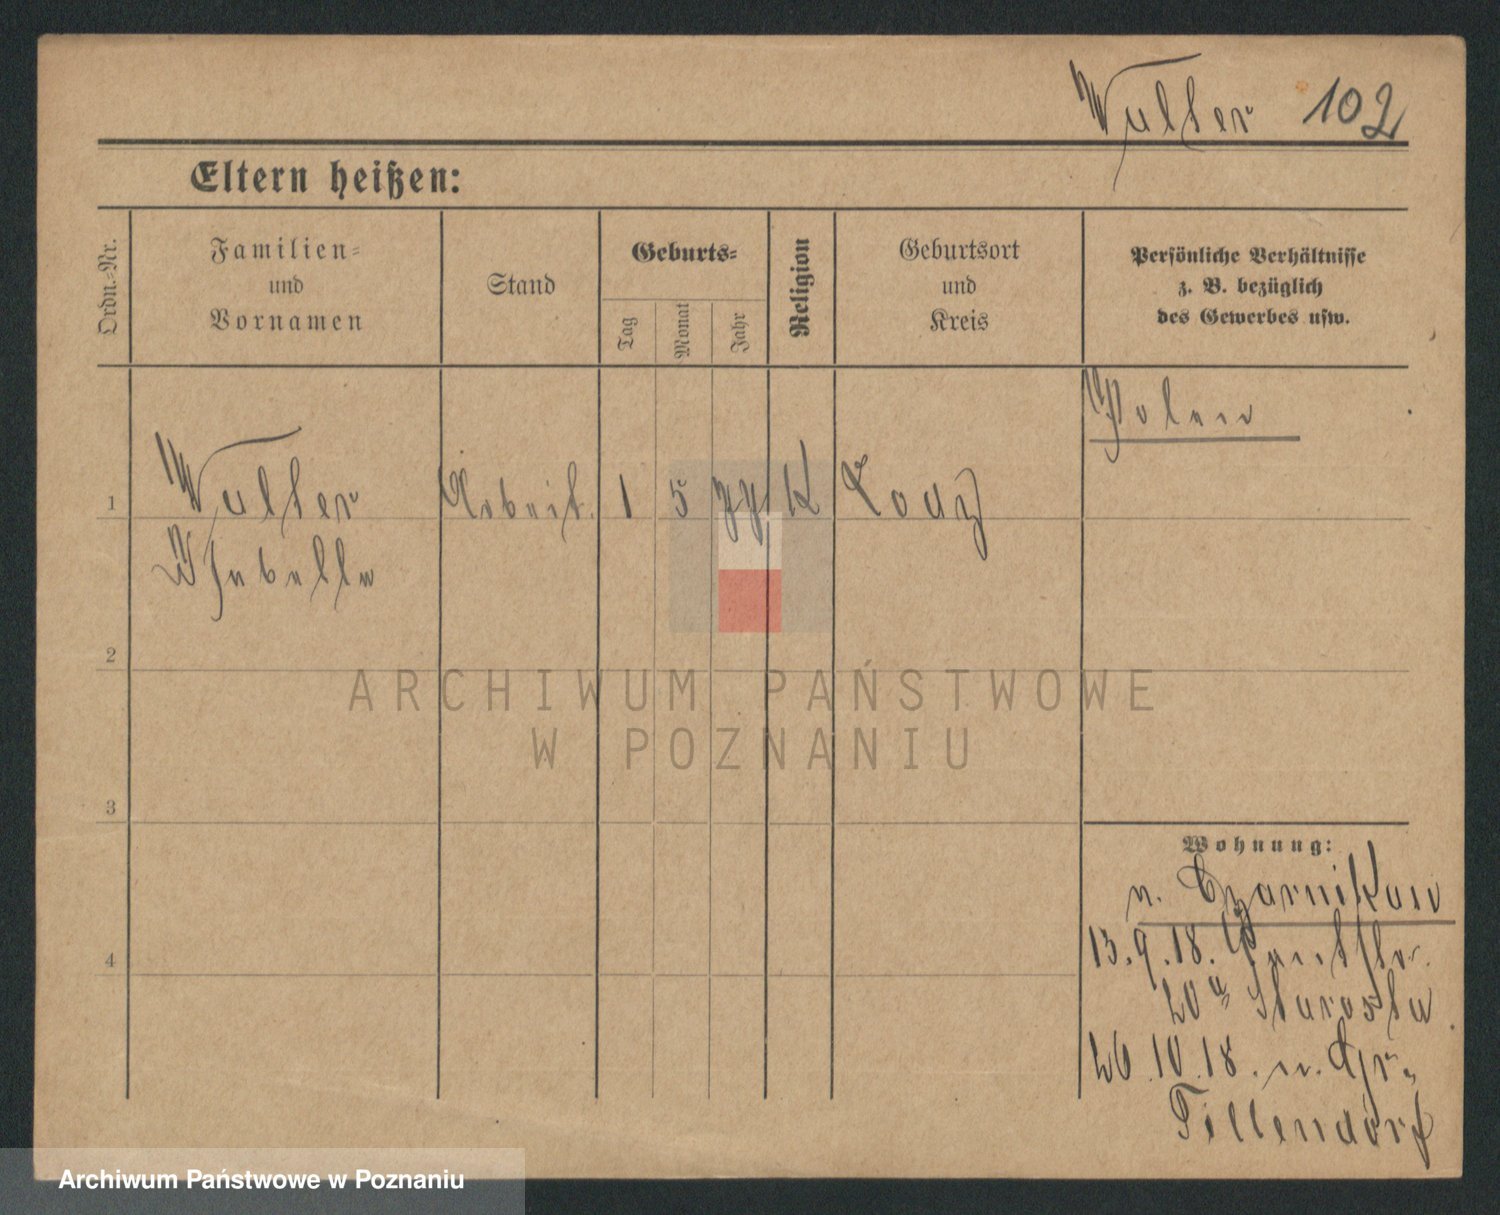 Walter 102
Eltern heißen:
Ordn.-Nr.
Familien-
und
Vornamen
Stand
Geburts-
Tag
Monat
Jahr
Religion
Geburtsort
und
Kreis
Persönliche Verhältnisse
z. B. bezüglich
des Gewerbes usw.
Polen
1
Walter Arbeit. 1 5 77 K Lodz
2
3
4
Wohnung:
v. Czarnikau
13.9.18.
20a Starosta
26.10.18. n. Gr.
Tillendorf
ARCHIWUM PAŃSTWOWE
W POZNANIU
Archiwum Państwowe w Poznaniu